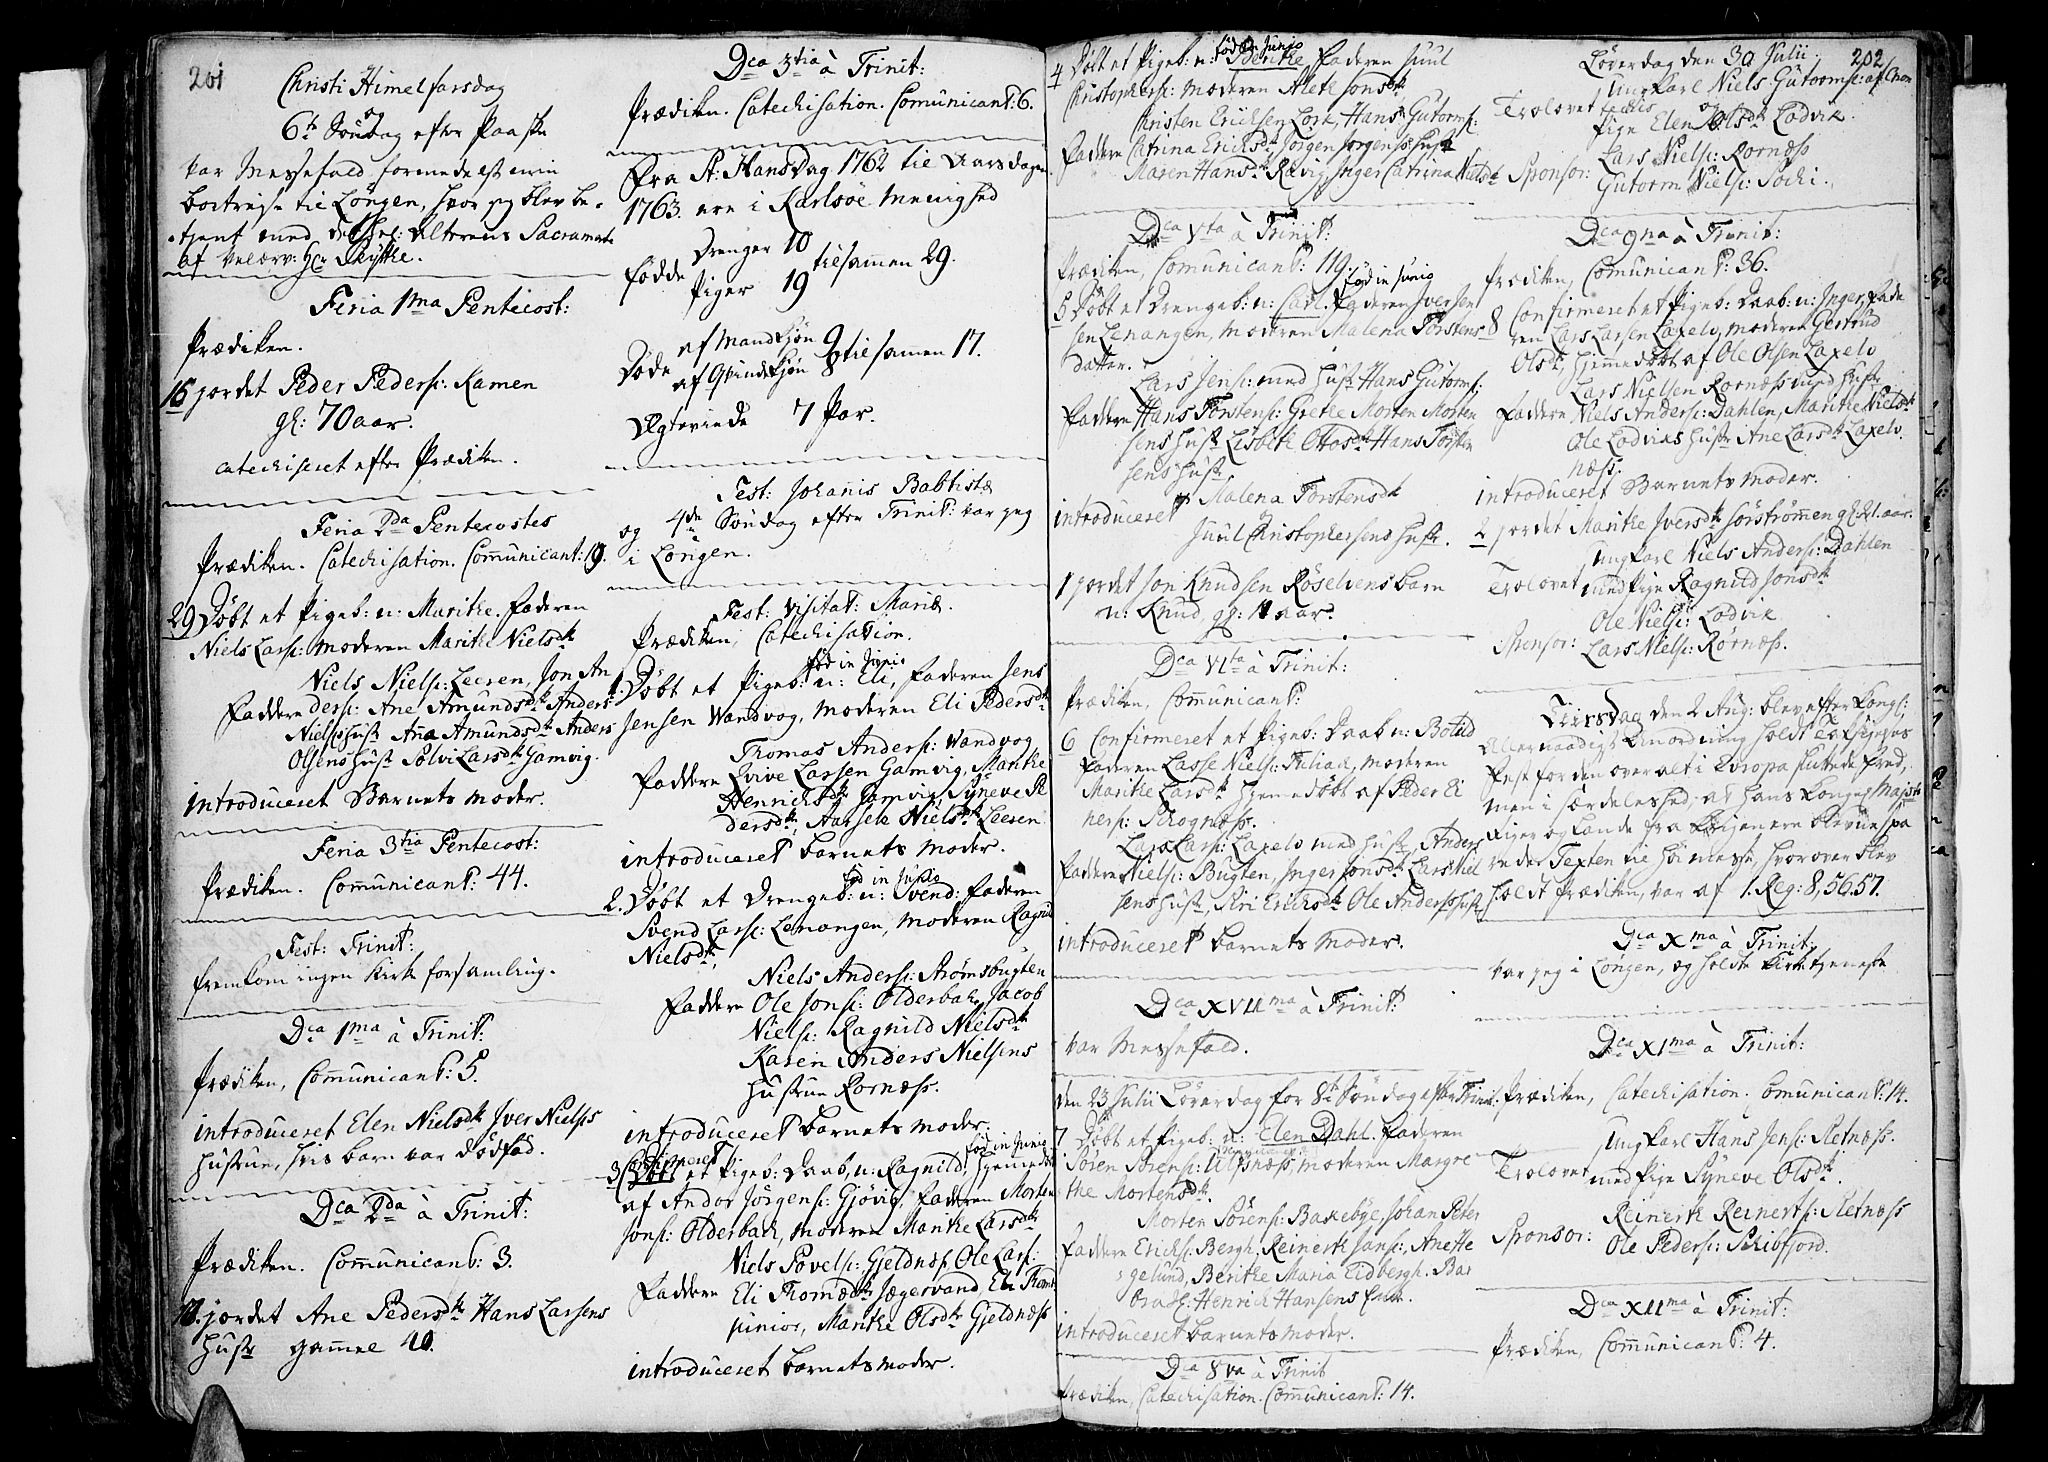 201
Christi Himelfarsdag
og
6te Søndag efter Paaske
var Messefald formedelst min
bortreise til Løngen, hvor jeg blev be-
tient med det Hel: Alterens Sacramente
af Velærv: Hr
Feria 1ma Pentecost:
Prædiken.
16 jordet Peder Peders: Kamen
gl: 70 aar.
catechiseret efter Prædiken.
Feria 2da Pentecostes
Prædiken. Catechisation. Communicant: 19.
29 Døbt et Pigeb: n: Maritke. Faderen
Niels Lars: Moderen Maritke Nielsdtr
Niels Niels: Leeren, Jon An
Faddere ders: Ane Amundsdtr Anders
Niels: Hustr Anna Amundsdtr Anders
Olsens Hustr Sølvi Larsdtr Gamvig.
introduceret Barnets Moder.
Feria 3tia Pentecost:
Prædiken. Communicant: 44.
Fest: Trinit:
fremkom ingen Kirke forsamling.
Dca 1ma à Trinit:
Prædiken, Communicant: 5.
introduceret Elen Nielsdtr Iver Nielses
Hustrue, hvis barn var dødfød.
Dca 2da à Trinit:
Prædiken. Communicant: 3.
jordet Ane Pedersdtr Hans Larsens
Hustr gammel 40.
Dca 3tia à Trinit:
Prædiken. Catechisation. Comunicant: 6.
Fra St: Hansdag 1762 til Aarsdagen
1763. ere i Karlsøe Menighed
Drenger 10
fødde tilsammen 29.
Piger 19
af Mandkiøn 9
Døde tilsamen 17.
af Qvindekiøn 8
Ægteviede 7 Par.
Fest: Johannis Babtistæ
og 4de Søndag efter Trinit: var jeg
i Løngen.
Fest: Visitat: Mariæ.
Prædiken, Catechisation.
fød in Junio
1. Døbt et Pigeb: n: Eli, Faderen Jens
Jensen Vandvog, Moderen Eli Pedersdtr
Thomas Anders: Vandvog
Faddere Ivive Larsen Gamvig, Maritke
Henricksdtr Gamvig, Syneve Pe
dersdtr, Aarsele Nielsdtr Leeren
introduceret barnets Moder.
fød in Junio
2. Døbt et Drengeb: n: Svend: Faderen
Svend Lars: Lenangen, Moderen Ragnild
Nielsdtr,
Niels Anders: Strømsbugten
Faddere Ole Jons: Olderbak, Jacob
Niels: Ragnild Nielsdtr
Karen Anders Nielsens
Hustrue Rornæss.
introduceret barnets Moder.
fød in Junio
3 Confirmeret et Pigeb: Daab, n: Ragnild, hjemedøbt
af Andor Jørgens: Gjøvig, Faderen Morten
Jons: Olderbak, Moderen Maritke Larsdtr
Niels Povels: Gjeldnæs, Ole Lars:
Faddere Eli Thomædtr Jægervand, Eli Thom
junior, Maritke Olsdtr Gjeldnæss
introduceret barnets moder.
fød in Junio
4 Døbt et Pigeb: n: Beritke, Faderen Juul
Christophers: moderen Aletke Jonsdtr
Christen Ericksen Lork, Hans Gutorms:
Faddere Catrina Ericksdtr Jørgen Jørgens: Hustr
Maren Hansdtr Ravig, Inger Catrina Nielsdtr
Dca Vta à Trinit:
Prædiken, Comunicant: 119.
fød in Junio
5 Døbt et Drengeb: n: Carl. Faderen Iver Jen
sen Lenangen, moderen Malena Torstens
datter.
Lars Jens: med Hustr Hans Gutorms:
Faddere Hans Torstens: Gretke Morten Morten
sens Hustr Lisbetke Ottosdtr Hans Torsten
sens Hustr
introduceret Malena Torstensdtr
og
Juul Christophersens Hustr.
1 jordet Jon Knudsen Røselvens barn
n: Knud, gl: 11 aar.
Dca VIta à Trinit:
Prædiken, Comunicant:
6 Confirmeret et Pigeb: Daab n: Botild
Faderen Lasse Niels: Kuliak, moderen
Maritke Larsdtr hjemedøbt af Peder Ei
ners: Skognæss.
Lars Lars: Laxelv med Hustr, Anders
Faddere Niels: Bugten, Inger Jonsdtr Lars Niel
sens Hustr, Kiri Ericksdtr Ole Anders: Hustr
introduceret barnets Moder.
Dca XVIIma à Trinit:
var Messefald.
den 23 Julii Løverdag for 8te Søndag efter Trinit:
7 Døbt et Pigeb: n: Elen Dahl. Faderen
Søren Sørens: Ulfsnæss, moderen Margre
the Mortensdtr.
Morten Sørens: Bakkebye, Johan Peter
Faddere Ericks: Bergh, Reinertk Jans:, Anette
gelund, Beritke Maria Eidbergh. Bar
Henrick Hansens
introduceret barnets moder.
Dca 8va à Trinit
Prædiken, Catechisation. Communicant: 14.
202
Løverdag den 30 Julii
Ungkarl Niels Gutorms:
Trolovet og
Pige Elen Olsdtr Lodvik.
Lars Niels: Rornæss
Sponsor:
Gutorm Niels: Sochi.
Dca 9na à Trinit:
Prædiken, Comunicant: 36.
8 Confirmeret et Pigeb: Daab: n: Inger, Fade
ren Lars Larsen Laxelv, moderen Gertrud
Olsdtr, hjemmedøbt af Ole Olsen Laxelv
Lars Nielsen Rornæss med Hustr
Faddere Niels Anders: Dahlen, Maritke Nielsdtr
Ole Lodviks Hustr Ane Larsdtr Laxelv.
næss.
introduceret Barnets Moder.
2 jordet Maritke Iversdtr Sørstrømmen gl: 21. aar.
Ungkarl Niels Anders: Dahlen
Trolovet med Pige Ragnild Jonsdtr
Ole Niels: Lodvik
Sponsor:
Lars Niels: Rørnæss.
Tiirsdag den 2 Aug: blev efter Kongl:
Allernaadigst Anordning holdt Taksigelses
Fest for den over alt i Evropa sluttede Fred,
men i særdeleshed, at Hans Kongel Majsts
Riger og Lande fra Krigen ere blevne spa
rede: Texten til Høimesse, hvorover blev
holdt Prædiken, var af 1. Reg: 8, 56.57.
Dca Xma à Trinit:
var jeg i Løngen, og holdte Kirketjeneste
Dca XIma à Trinit:
Prædiken, Catechisation. Comunicant: 14.
Ungkarl Hans Jens: Retnæss.
Trolovet med Pige Syneve Olsdtr.
Reinertk Reinerts: Retnæss
Sponsor:
Ole Peders: Skibsfjord.
Dca XIIma à Trinit:
Prædiken, Communicant: 4.